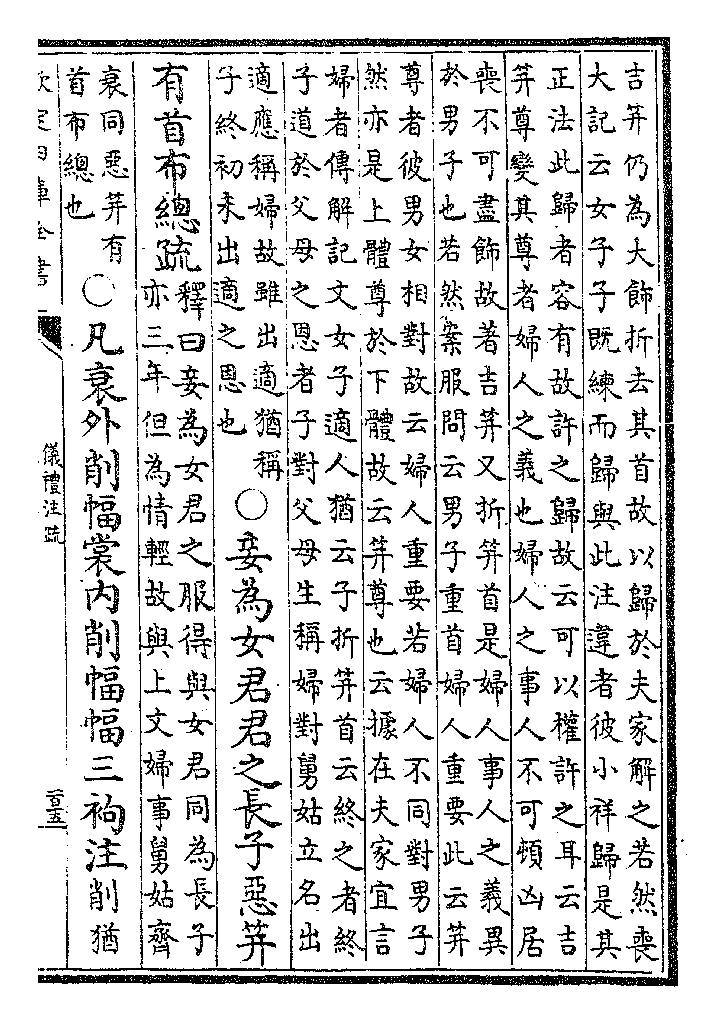 吉笄仍為大飾折去其首故以歸於夫家解之若然喪
大記云女子子既練而歸與此注違者彼小祥歸是其
正法此歸者容有故許之歸故云可以權許之耳云吉
笄尊變其尊者婦人之義也婦人之事人不可頓凶居
喪不可盡飾故著吉笄又折笄首是婦人事人之義異
於男子也若然案服問云男子重首婦人重要此云笄
尊者彼男女相對故云婦人重要若婦人不同對男子
然亦是上體尊於下體故云笄尊也云據在夫家宜言
婦者傳解記文女子適人猶云子折笄首云終之者終
子道於父母之恩者子對父母生稱婦對舅姑立名出
適應稱婦故雖出適猶稱
子終初未出適之恩也
○妾為女君君之長子惡笄
有首布總疏
釋曰妾為女君之服得與女君同為長子
亦三年但為情輕故與上文婦事舅姑齊
衰同惡笄有
首布總也
○凡衰外削幅裳內削幅幅三袧注削猶
欽定四庫全書
儀禮注疏